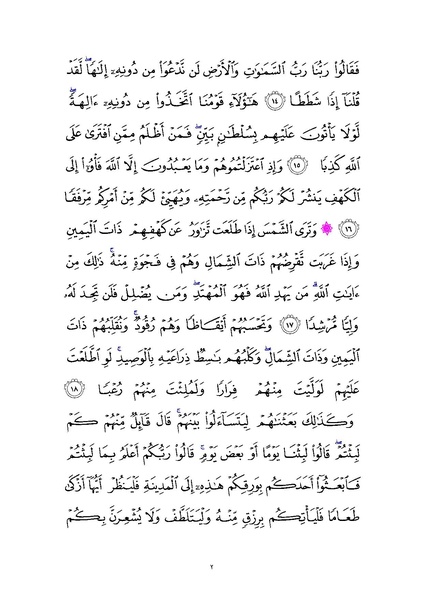 فَقَالُوا۟ رَبُّنَا رَبُّ ٱلسَّمَـٰوَٰتِ وَٱلْأَرْضِ لَن نَّدْعُوَا۟ مِن دُونِهِۦٓ إِلَـٰهًا ۖ لَّقَدْ
قُلْنَآ إِذًا شَطَطًا ١٤ هَـٰٓؤُلَآءِ قَوْمُنَا ٱتَّخَذُوا۟ مِن دُونِهِۦٓ ءَالِهَةً ۖ
لَّوْلَا يَأْتُونَ عَلَيْهِم بِسُلْطَـٰنٍۭ بَيِّنٍ ۖ فَمَنْ أَظْلَمُ مِمَّنِ ٱفْتَرَىٰ عَلَى
ٱللَّهِ كَذِبًا ١٥ وَإِذِ ٱعْتَزَلْتُمُوهُمْ وَمَا يَعْبُدُونَ إِلَّا ٱللَّهَ فَأْوُۥٓا۟ إِلَى
ٱلْكَهْفِ يَنشُرْ لَكُمْ رَبُّكُم مِّن رَّحْمَتِهِۦ وَيُهَيِّئْ لَكُم مِّنْ أَمْرِكُم مِّرْفَقًا
١٦ ۞ وَتَرَى ٱلشَّمْسَ إِذَا طَلَعَت تَّزَٰوَرُ عَن كَهْفِهِمْ ذَاتَ ٱلْيَمِينِ
وَإِذَا غَرَبَت تَّقْرِضُهُمْ ذَاتَ ٱلشِّمَالِ وَهُمْ فِى فَجْوَةٍ مِّنْهُ ۚ ذَٰلِكَ مِنْ
ءَايَـٰتِ ٱللَّهِ ۗ مَن يَهْدِ ٱللَّهُ فَهُوَ ٱلْمُهْتَدِ ۖ وَمَن يُضْلِلْ فَلَن تَجِدَ لَهُۥ
وَلِيًّا مُّرْشِدًا ١٧ وَتَحْسَبُهُمْ أَيْقَاظًا وَهُمْ رُقُودٌ ۚ وَنُقَلِّبُهُمْ ذَاتَ
ٱلْيَمِينِ وَذَاتَ ٱلشِّمَالِ ۖ وَكَلْبُهُم بَـٰسِطٌ ذِرَاعَيْهِ بِٱلْوَصِيدِ ۚ لَوِ ٱطَّلَعْتَ
عَلَيْهِمْ لَوَلَّيْتَ مِنْهُمْ فِرَارًا وَلَمُلِئْتَ مِنْهُمْ رُعْبًا ١٨
وَكَذَٰلِكَ بَعَثْنَـٰهُمْ لِيَتَسَآءَلُوا۟ بَيْنَهُمْ ۚ قَالَ قَآئِلٌ مِّنْهُمْ كَمْ
لَبِثْتُمْ ۖ قَالُوا۟ لَبِثْنَا يَوْمًا أَوْ بَعْضَ يَوْمٍ ۚ قَالُوا۟ رَبُّكُمْ أَعْلَمُ بِمَا لَبِثْتُمْ
فَٱبْعَثُوٓا۟ أَحَدَكُم بِوَرِقِكُمْ هَـٰذِهِۦٓ إِلَى ٱلْمَدِينَةِ فَلْيَنظُرْ أَيُّهَآ أَزْكَىٰ
طَعَامًا فَلْيَأْتِكُم بِرِزْقٍ مِّنْهُ وَلْيَتَلَطَّفْ وَلَا يُشْعِرَنَّ بِكُمْ
٢